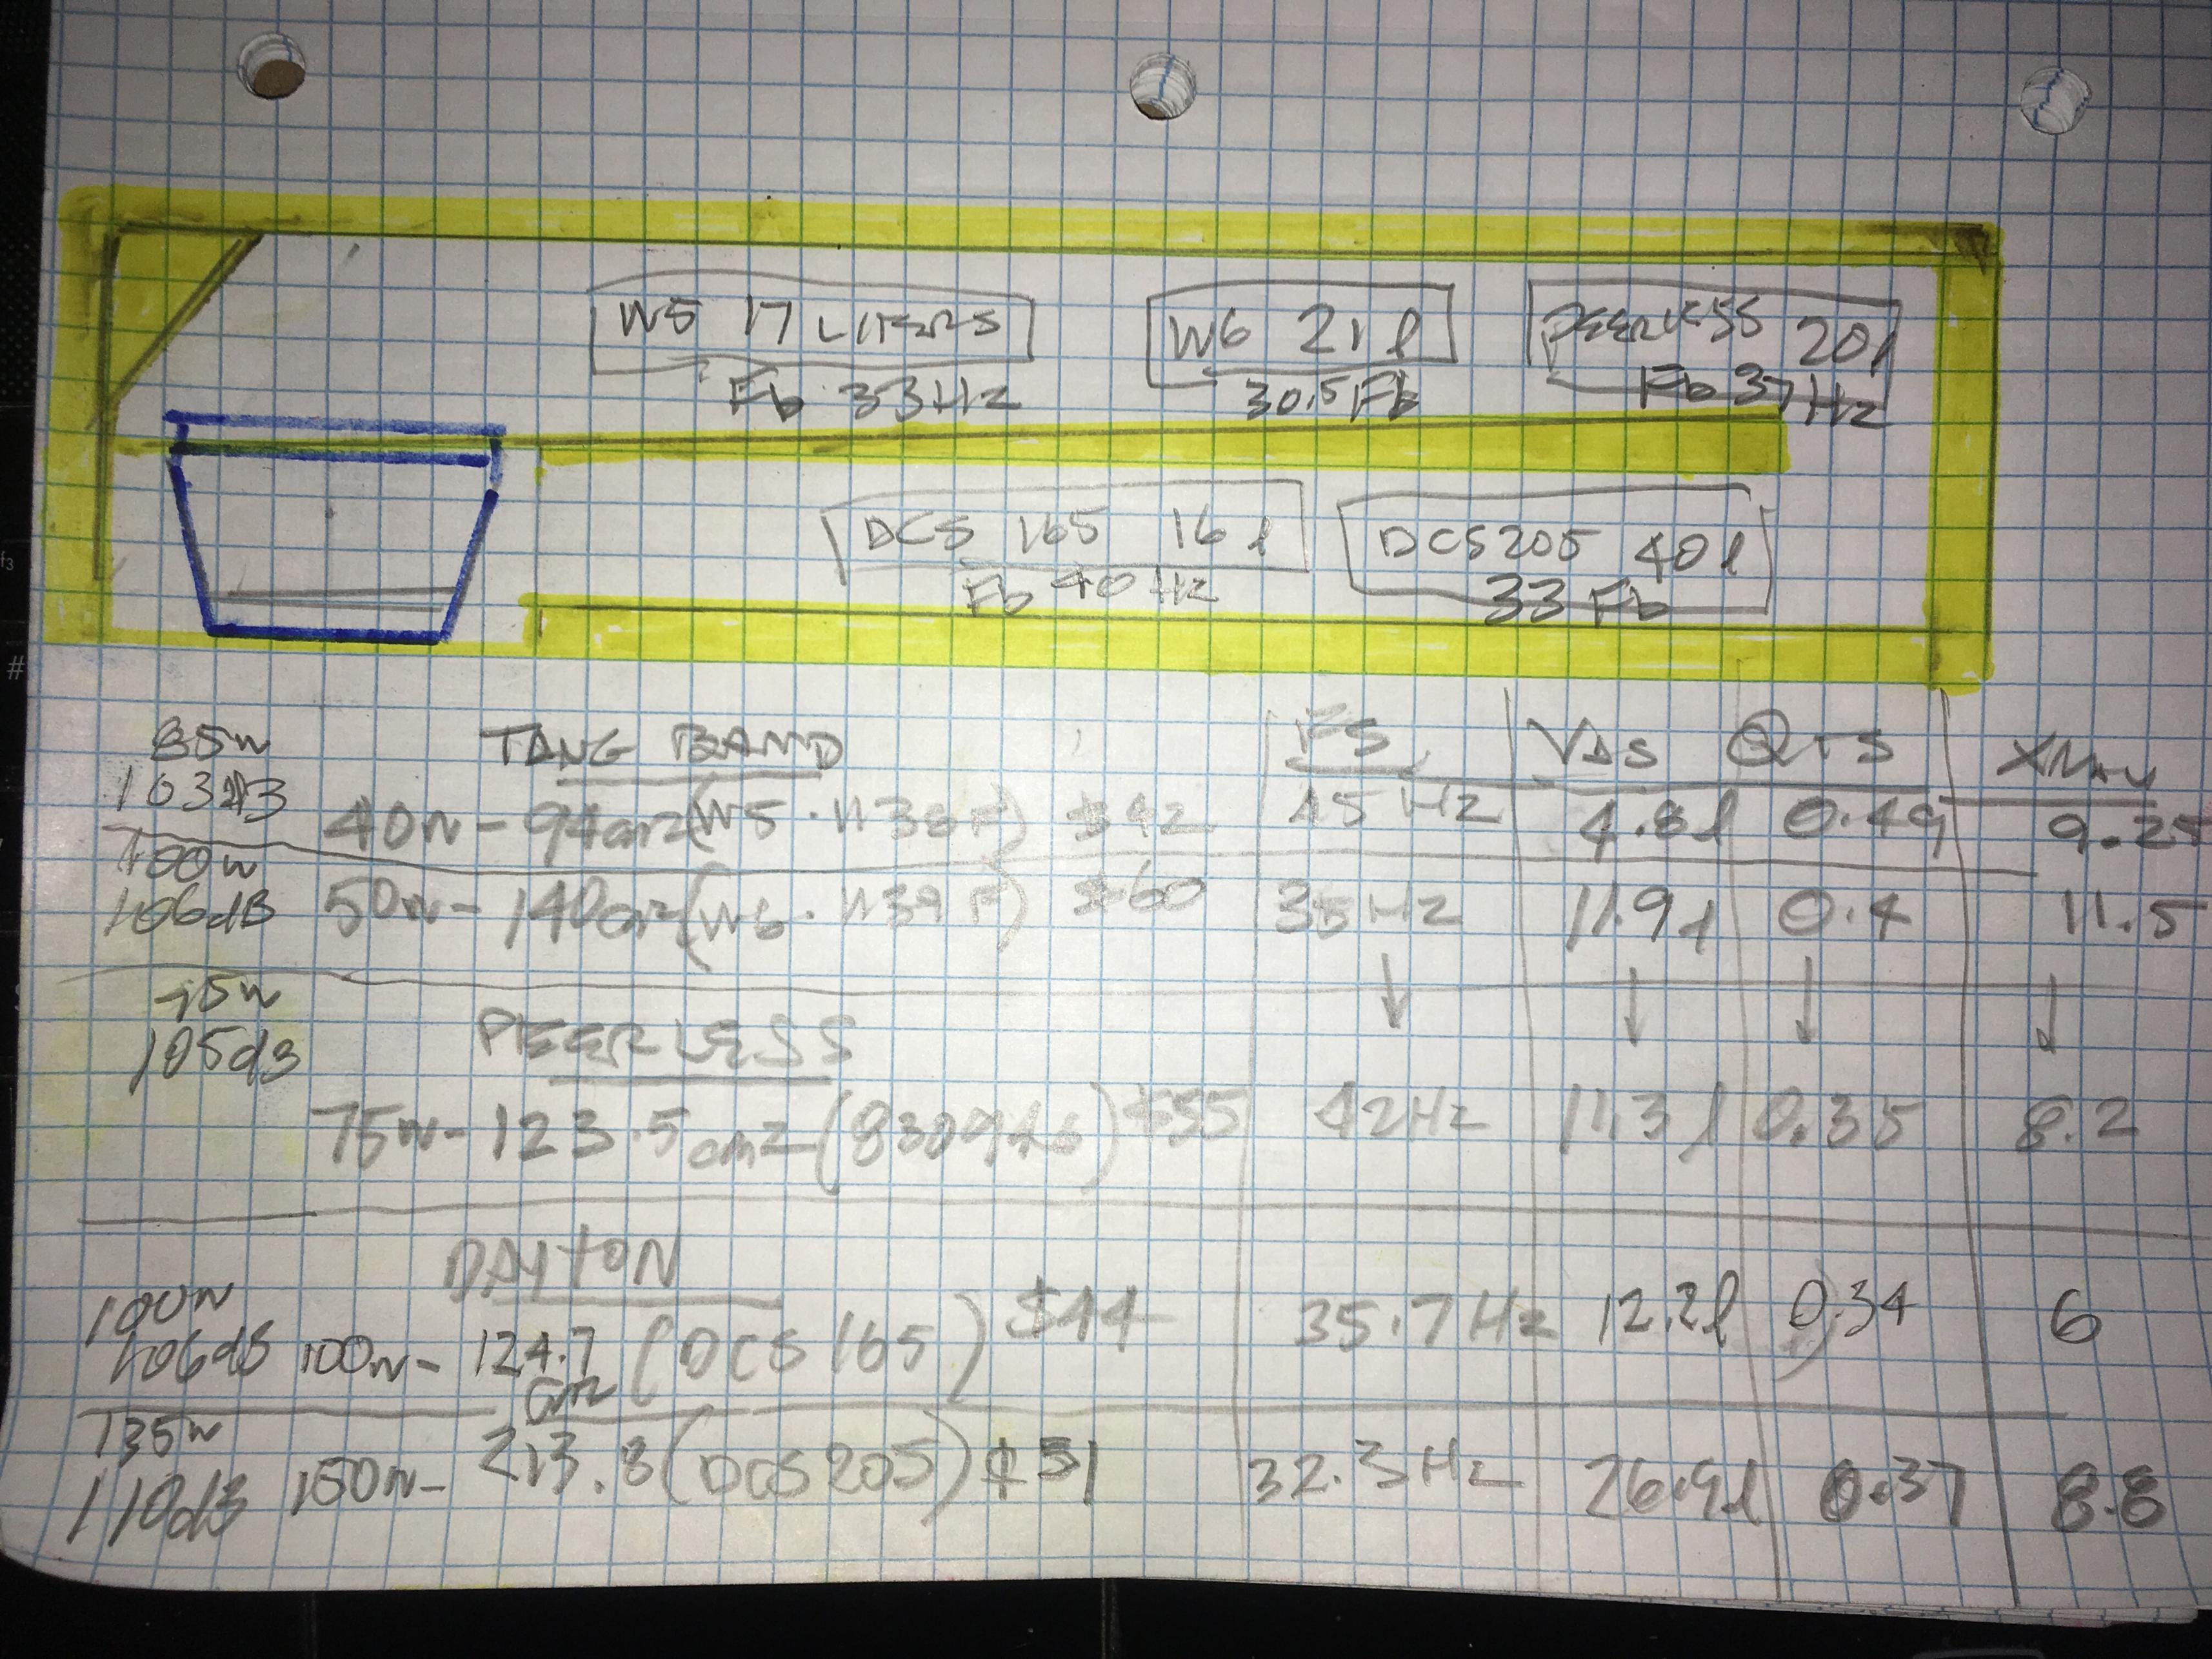 W5 17 LITERS
Fb 33Hz
W6 21l
30.5Fb
PEERLESS 20l
Fb 37Hz
DCS 165 16l
Fb 40Hz
DCS205 40l
33 Fb
TANG BAND FS VAS QTS XMAX
85w
103dB
40w - 94cm2 (W5-1138F) $42 45Hz 4.8l 0.49 9.25
100w
106dB
50w - 140cm2 (W6-1139F) $60 35Hz 11.9l 0.4 11.5
75w
105dB
PEERLESS
75w - 123.5cm2 $55 42Hz 11.3l 0.35 8.2
DAYTON
100w
106dB
100w - 124.7 cm2 (DCS 165) $44 35.7Hz 12.2l 0.34 6
135w
110dB
150w - 213.8 (DCS 205) $51 32.3Hz 26.9l 0.37 8.8